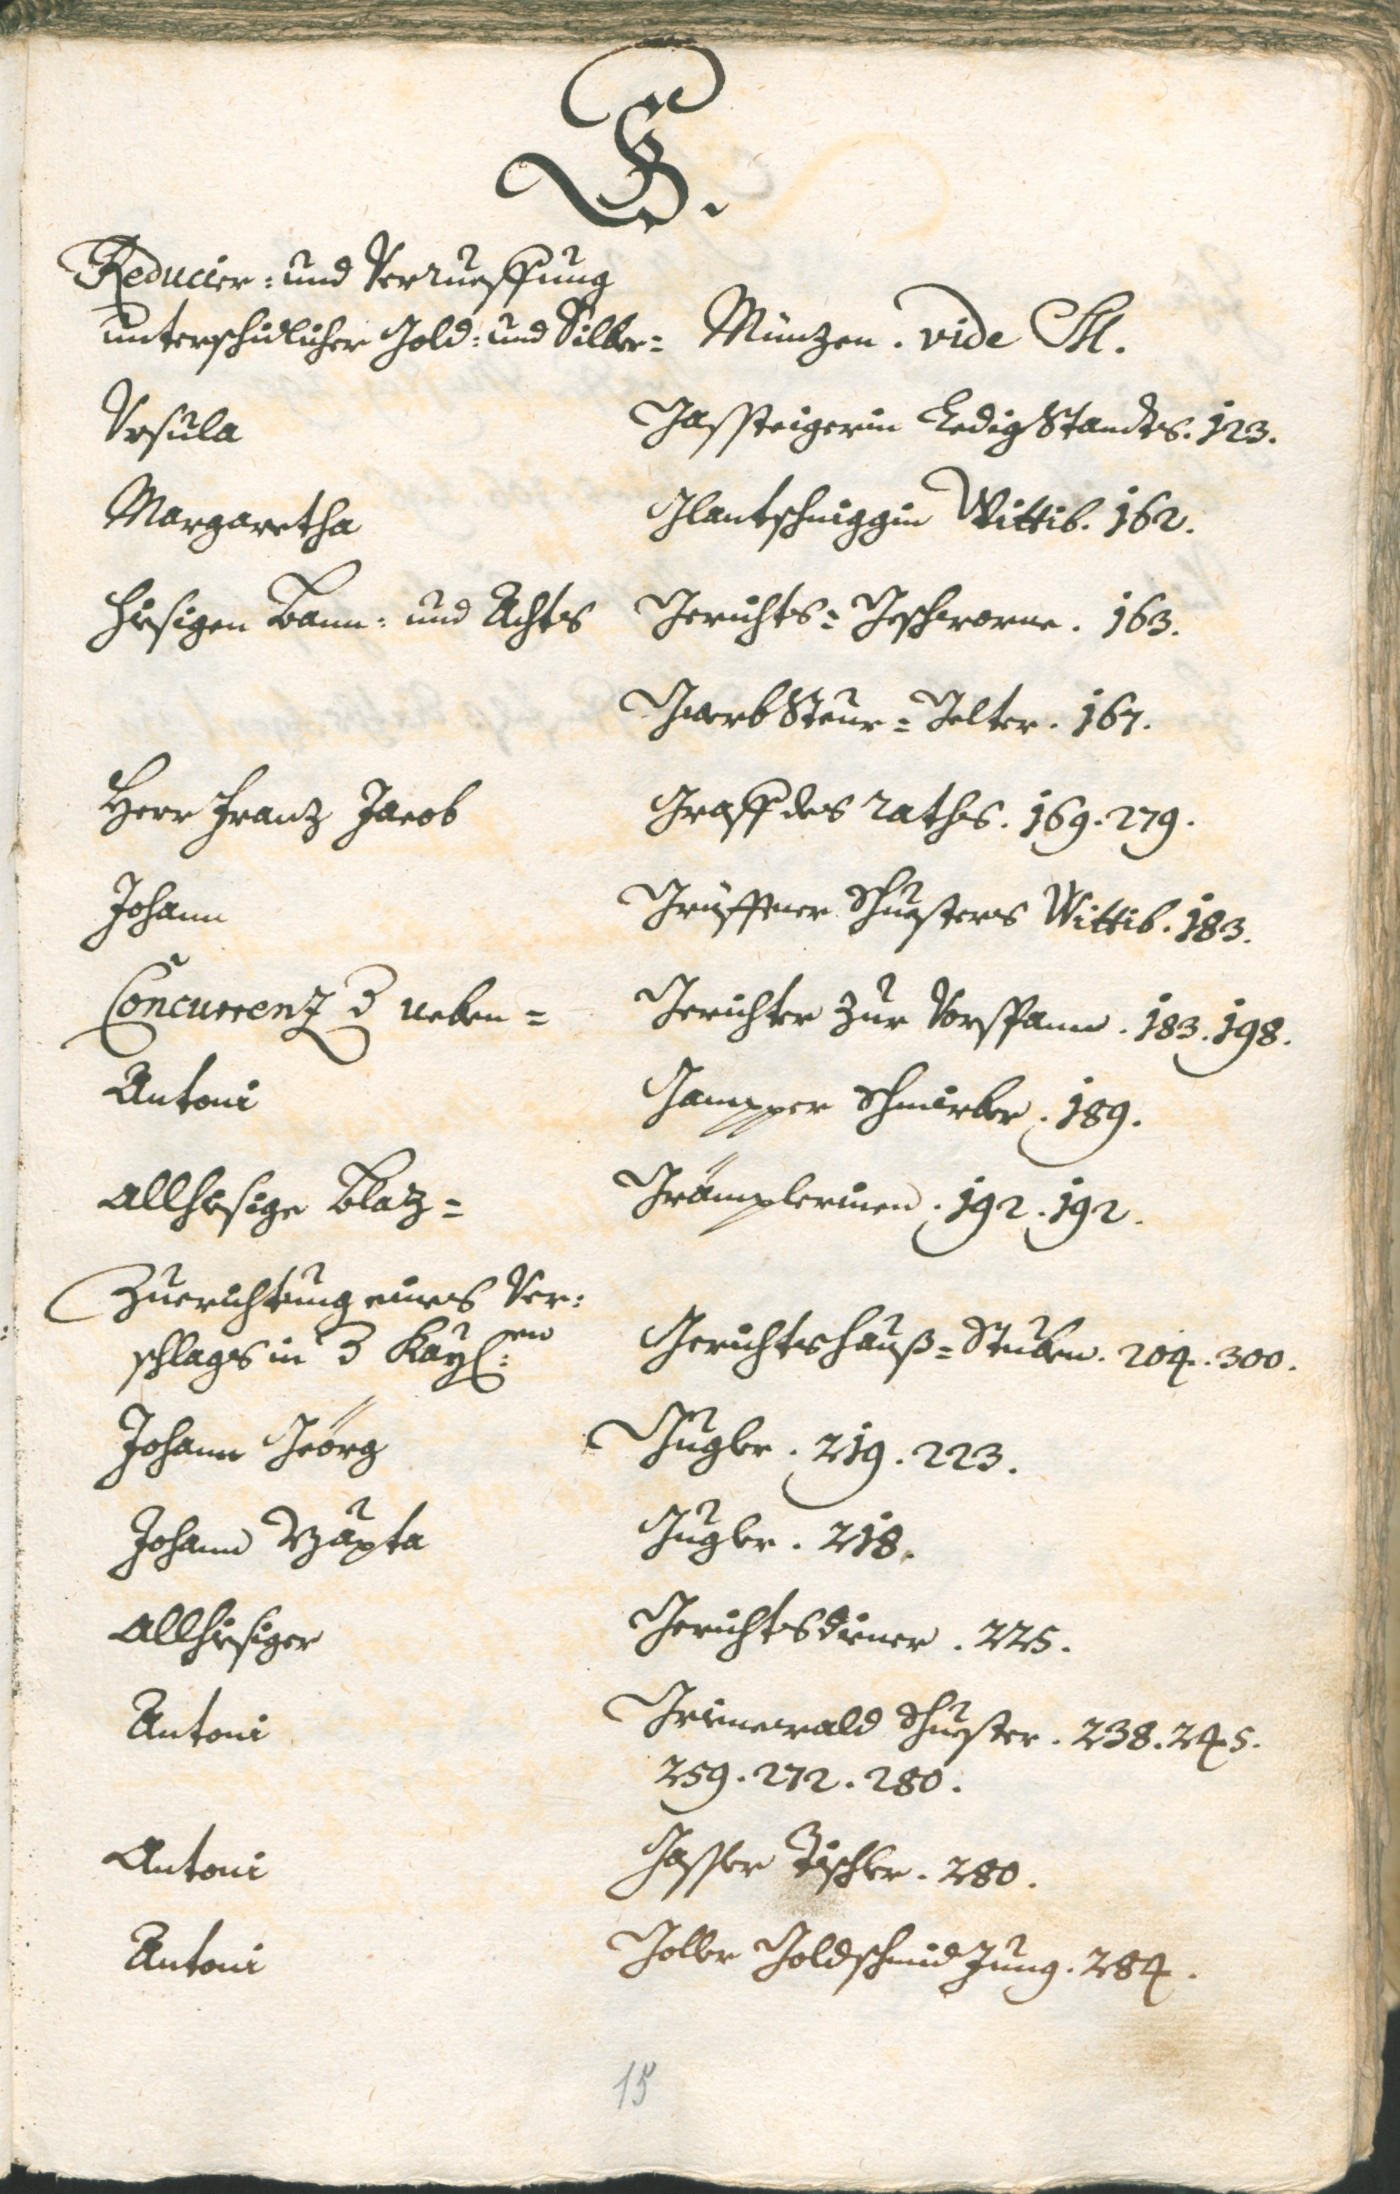 G.
Reducier: und Verrueffung
unterschidlicher Gold: und Silber= Münzen. vide M.
Ursula Gassteigerin Ledig Standts. 123.
Margaretha Glantschniggin Wittib. 162.
hiesigen Bann: und Achts Gerichts= Geschworne. 163.
Gwerb Steur= Gelter. 167.
Herr Franz Jacob Graff des raths. 169. 279.
Johann Grüffner Schuesters Wittib. 183.
Concurrenz 3 neben= Gerichter zur Vorspann. 183. 198.
Antoni Gampper Schnirber. 189.
allhiesige Blaz= Grämplerinen. 192. 192.
Zuerichtung eines Ver:
schlags in 3 Kayl:en Gerichtshauß=Stuben. 204. 300.
Johann Geörg Gugler. 219. 223.
Johann Bäpta Gugler. 218.
allhiesiger Gerichtsdiener. 225.
Antoni Grienewald Schuester. 238. 245.
259. 272. 280.
Antoni Gasser Tischler. 280.
Antoni Goller Goldschmid Jung. 284.
15